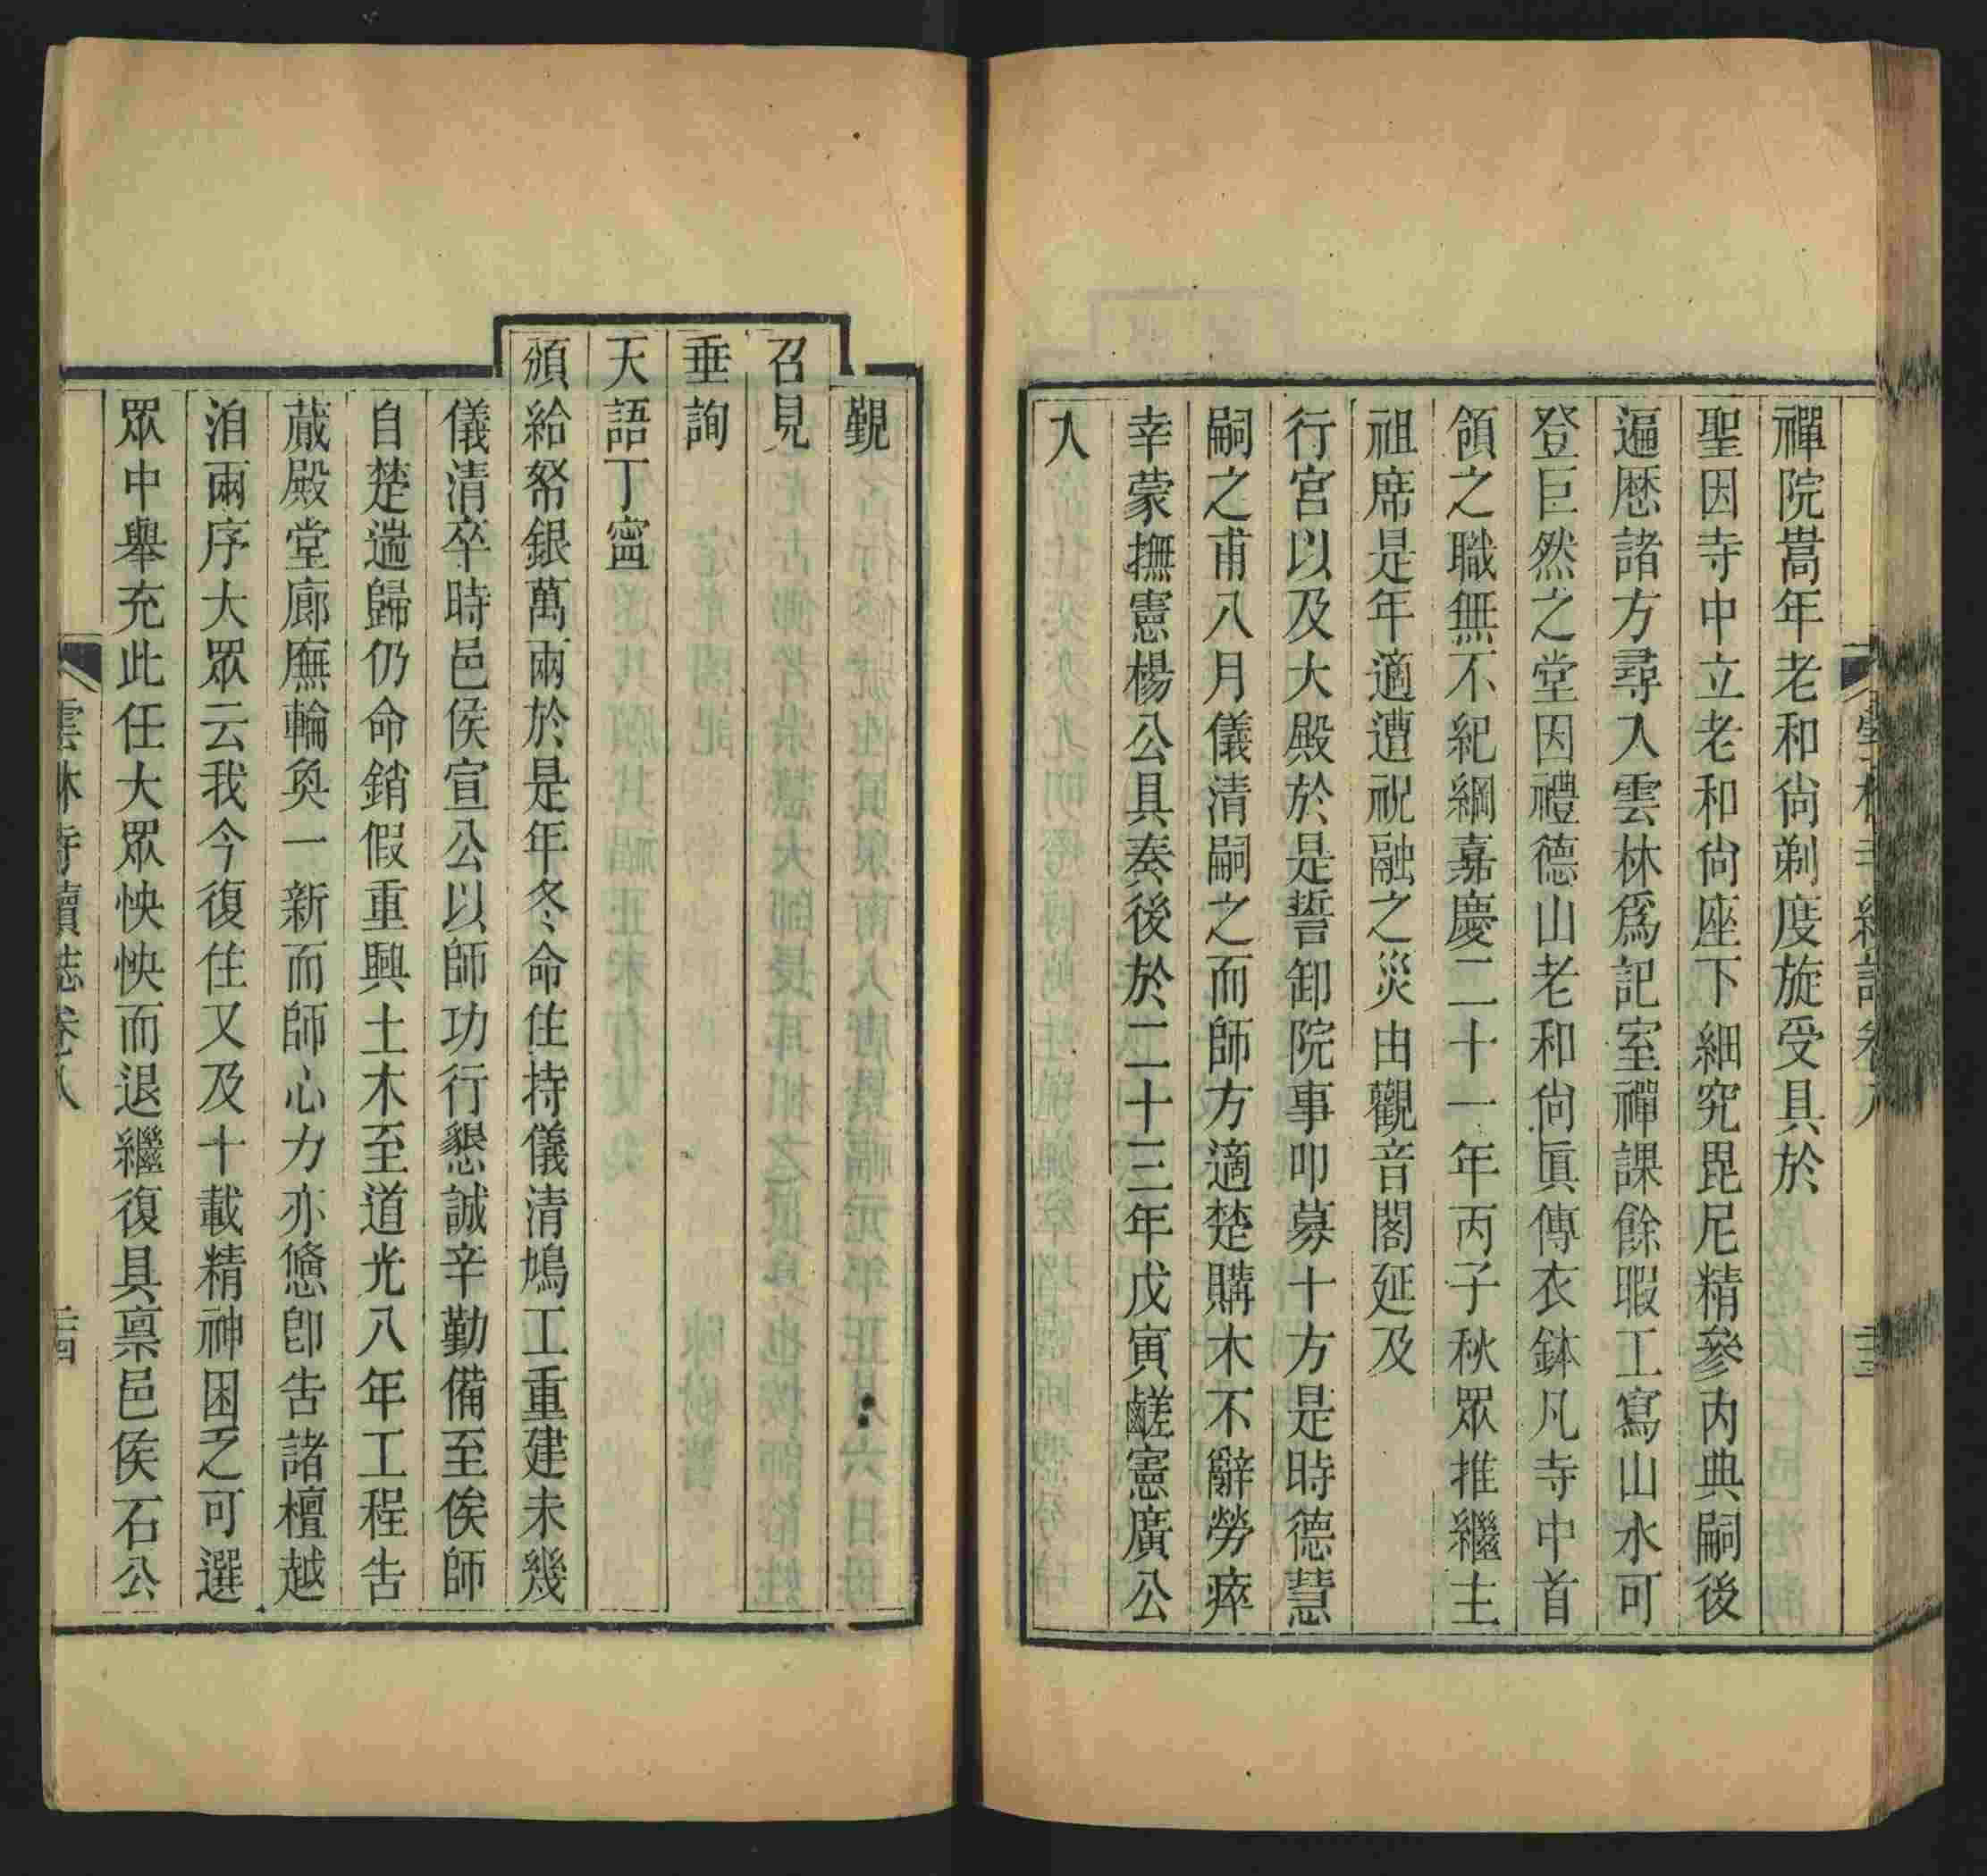 禪院嵩年老和尙剃度旋受具於
聖因寺中立老和尙座下細究毘尼精參內典嗣後
遍歷諸方尋入雲林爲記室禪課餘暇工寫山水可
登巨然之堂因禮德山老和尙眞傳衣鉢凡寺中首
領之職無不紀綱嘉慶二十一年丙子秋眾推繼主
祖席是年適遭祝融之災由觀音閣延及
行宮以及大殿於是誓卸院事叩募十方是時德慧
嗣之甫八月儀清嗣之而師方適楚購木不辭勞瘁
幸蒙撫憲楊公具奏後於二十三年戊寅鹺憲廣公
入
覲
召見
垂詢
天語丁寍
頒給帑銀萬兩於是年冬命住持儀清鳩工重建未幾
儀清卒時邑侯宣公以師功行懇誠辛勤備至俟師
自楚遄歸仍命銷假重興土木至道光八年工程告
蕆殿堂廊廡輪奐一新而師心力亦憊卽告諸檀越
洎兩序大眾云我今復住又及十載精神困乏可選
眾中舉充此任大眾怏怏而退繼復具禀邑侯石公
雲林寺續誌卷八
二十四